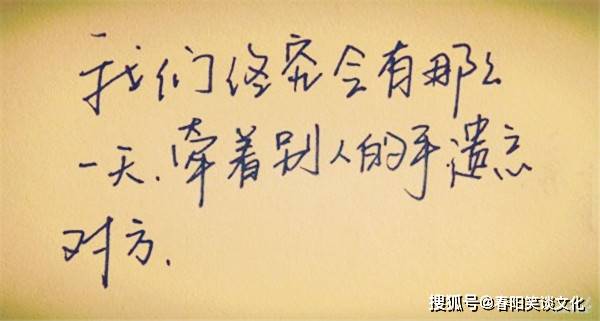 我们终究会有那么
一天.牵着别人的手遗忘
对方.
搜狐号@春阳笑谈文化